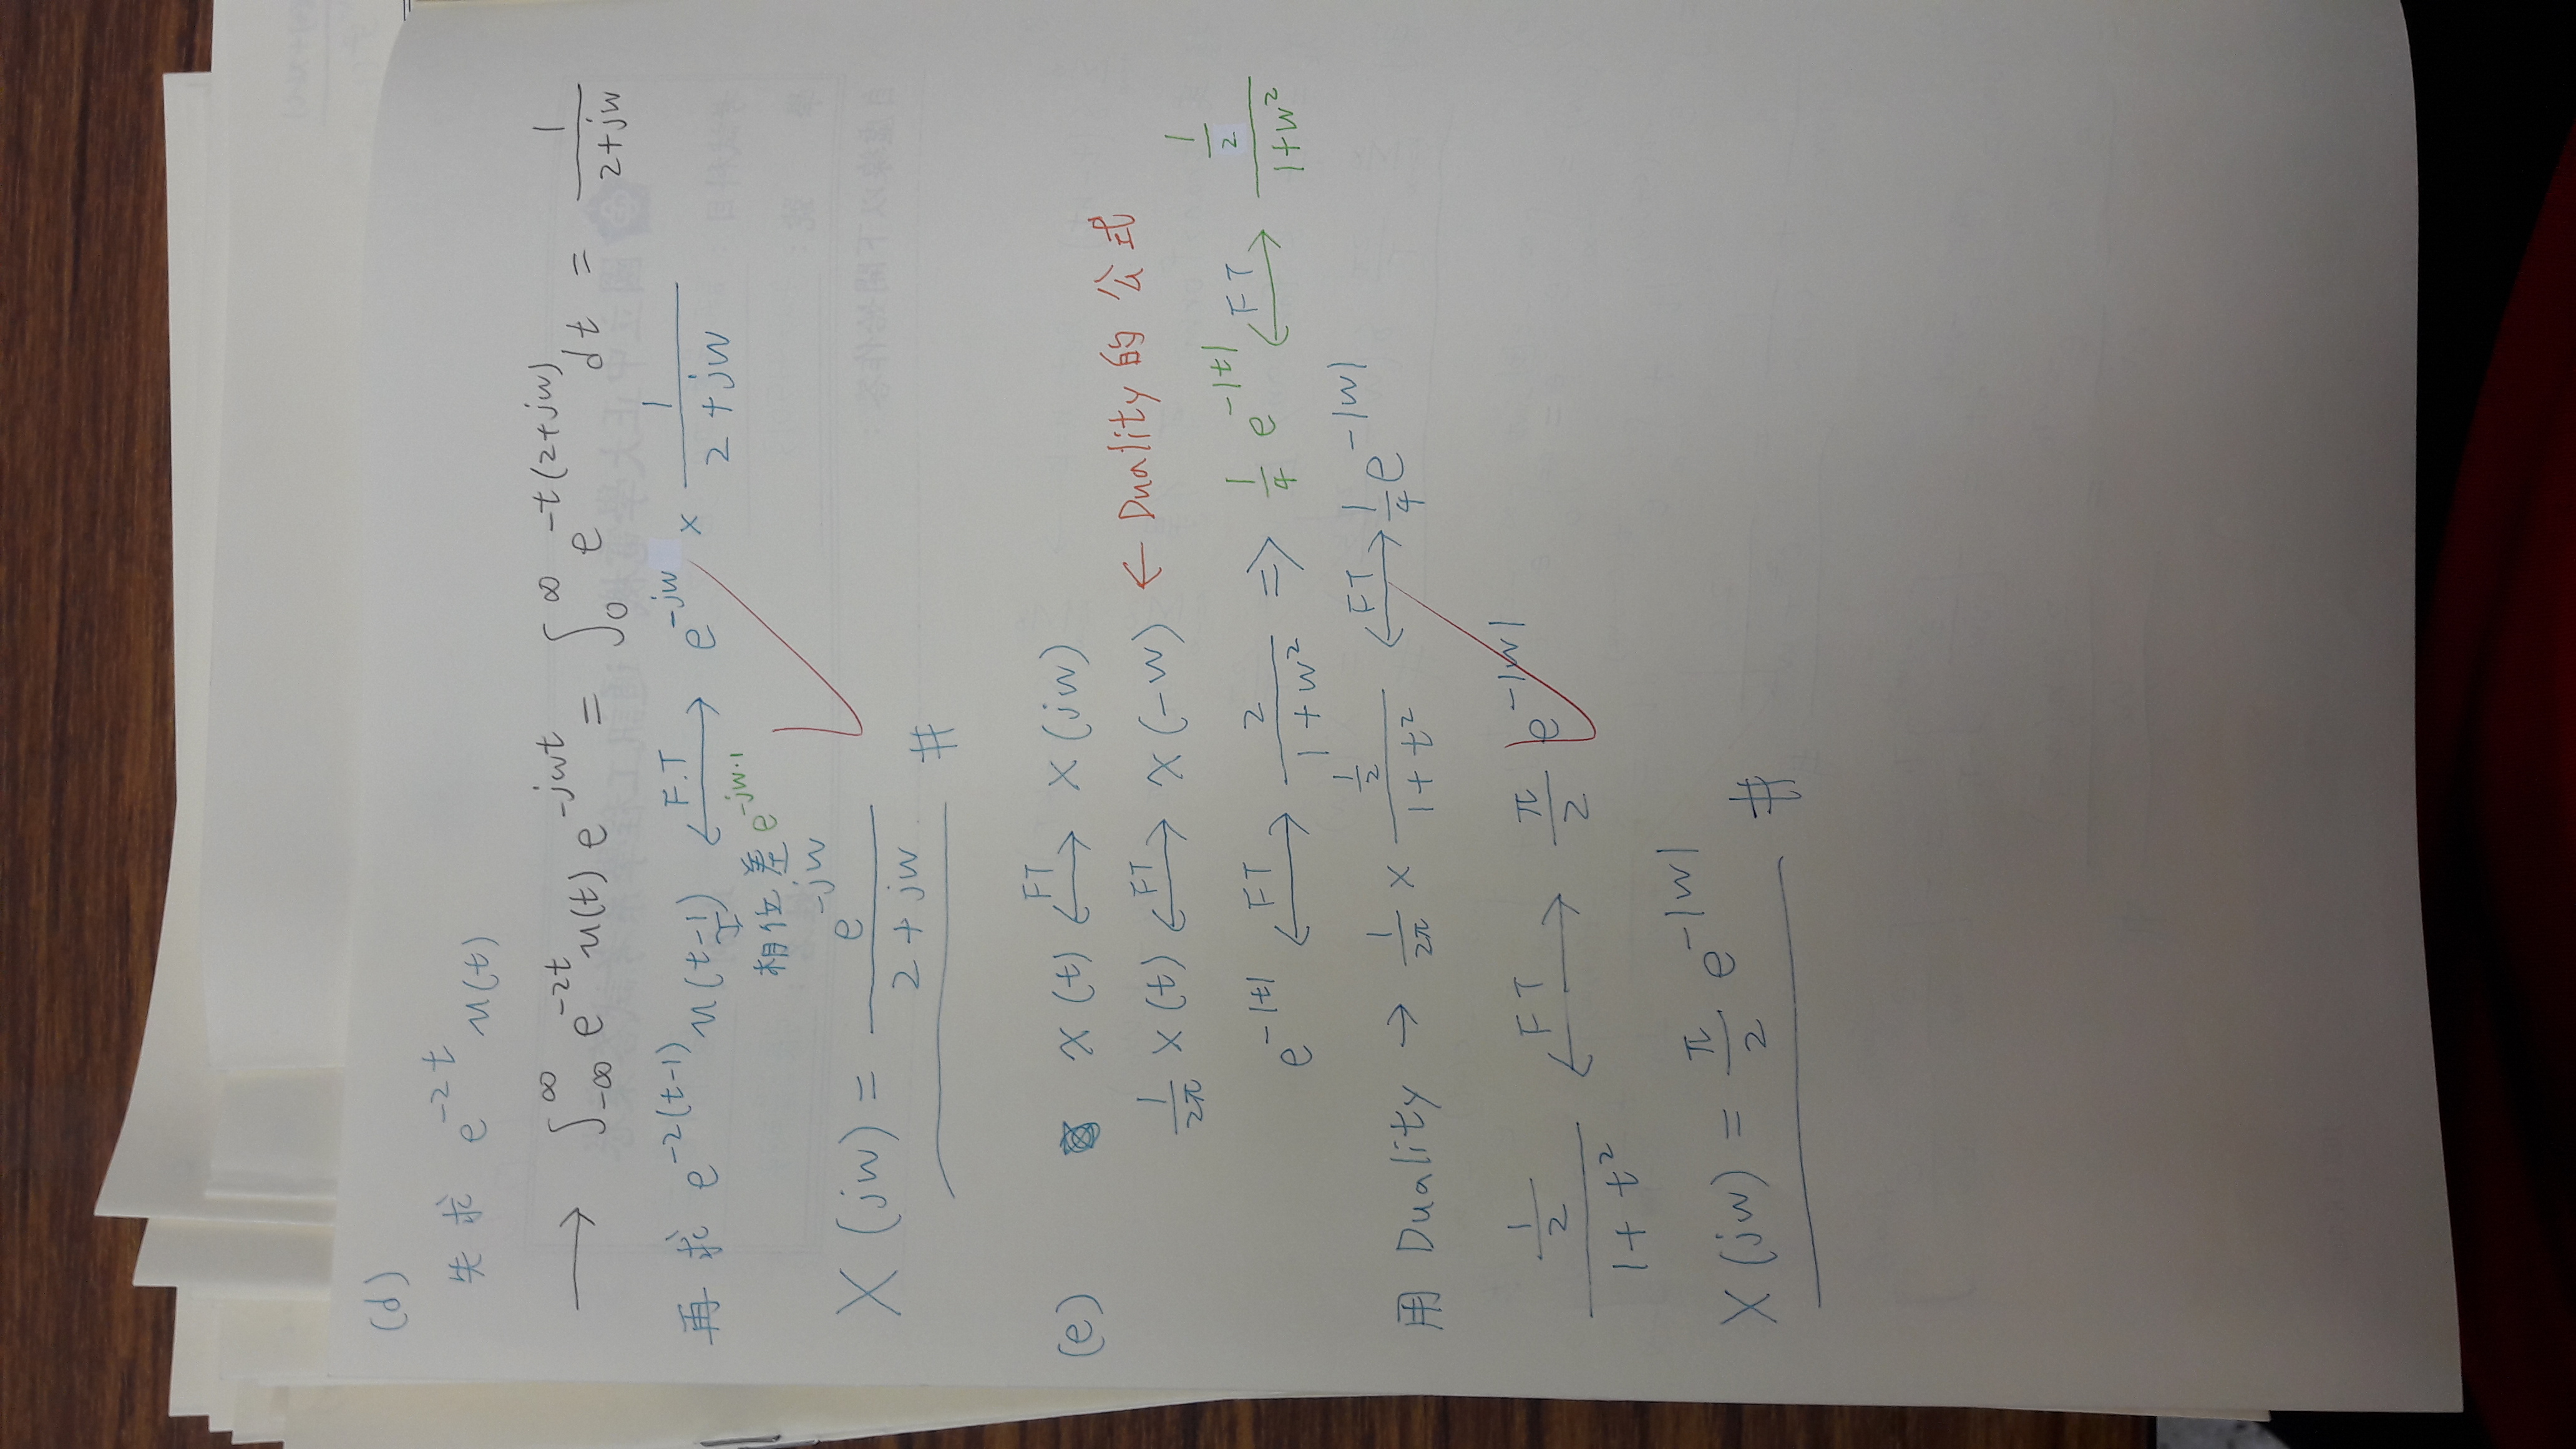 (d)
先求 e^{-2t} u(t)
→ ∫_{-∞}^{∞} e^{-2t} u(t) e^{-jwt} = ∫_0^∞ e^{-t(2+jw)} dt = 1/(2+jw)
再求 e^{-2(t-1)} u(t-1) ←F.T→ e^{-jw} × 1/(2+jw)
相位差 e^{-jw·1}
X(jw) = e^{-jw}/(2+jw) #
(e) x(t) ←FT→ X(jw)
1/2π X(t) ←FT→ x(-w) ← Duality 的 公式
e^{-|t|} ←FT→ 2/(1+w²) ⇒ 1/4 e^{-|t|} ←FT→ (1/2)/(1+w²)
用 Duality → 1/2π × (1/2)/(1+t²) ←FT→ 1/4 e^{-|w|}
(1/2)/(1+t²) ←FT→ π/2 e^{-|w|}
X(jw) = π/2 e^{-|w|} #
國立中正大學電機 通訊工程學系考試答案卷
考試科目
學 號：
姓名：
自虛線以下開始作答：